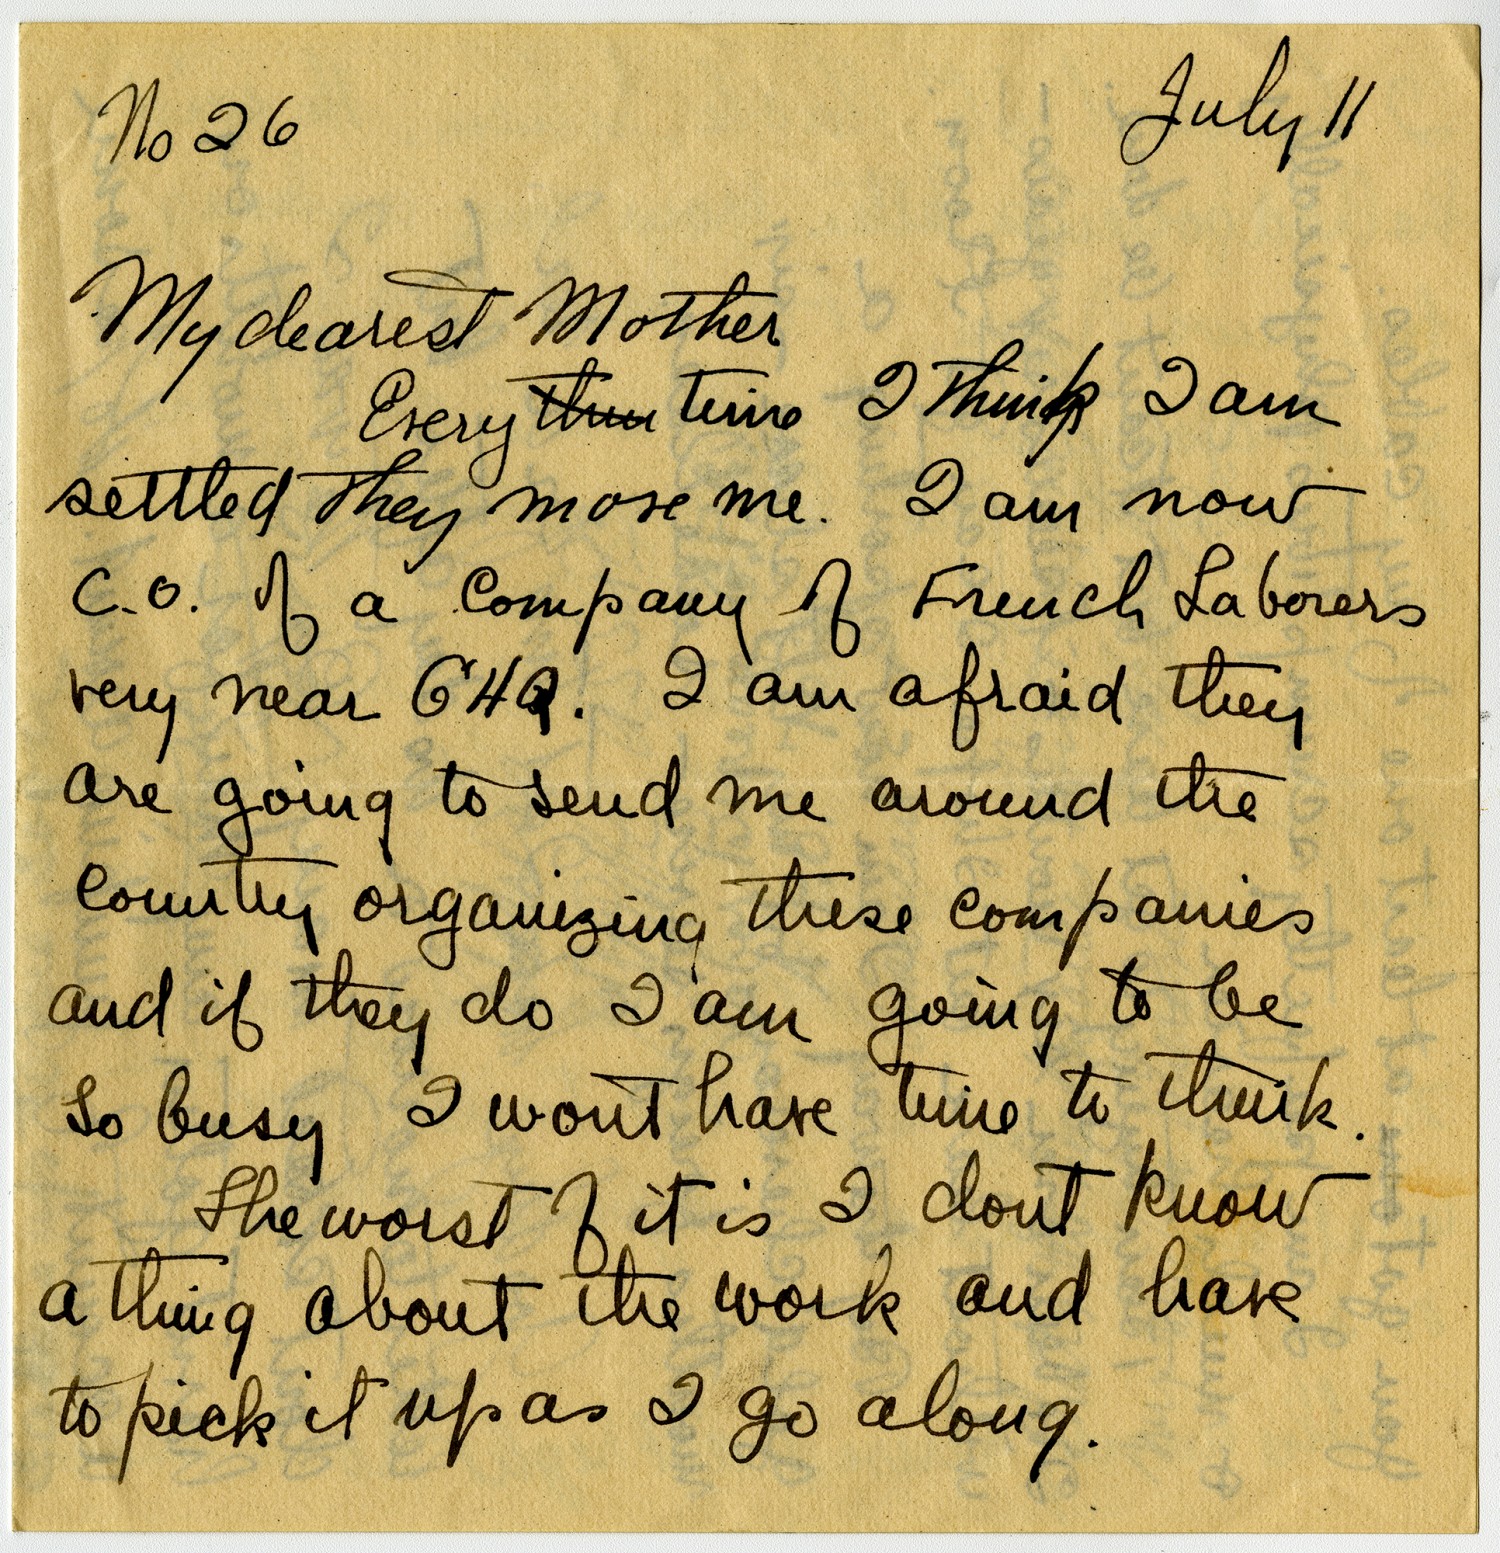 No 26
July 11
My dearest Mother
Every time I think I am
settled they move me. I am now
C.O. of a Company of French Laborers
very near GHQ. I am afraid they
are going to send me around the
country organizing these companies
and if they do I am going to be
so busy I wont have time to think.
The worst of it is I dont know
a thing about the work and have
to pick it up as I go along.